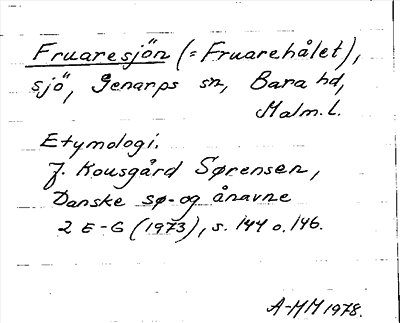 Fruaresjön (= Fruarehålet),
sjö, Genarps sn, Bara hd,
Malm. L.
Etymologi.
J. Kousgård Sørensen,
Danske sø- og ånavne
2 E-G (1973), s. 144 o. 146.
A-MM 1978.